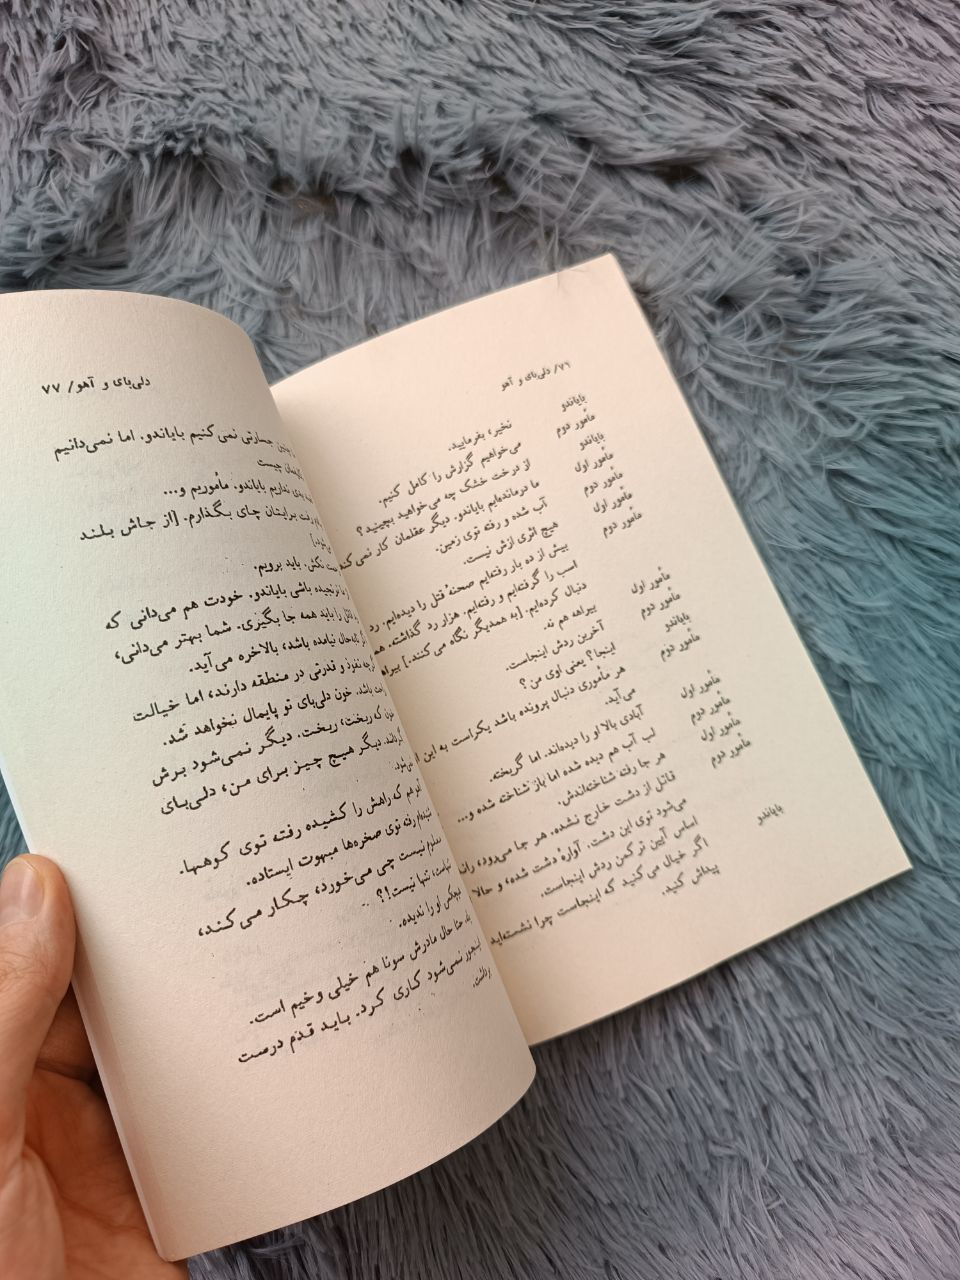 ۷۶/ دلی‌بای و آهو
بایاندو نخیر، بفرمایید.
مأمور دوم می‌خواهیم گزارش را کامل کنیم.
بایاندو از درخت خشک چه می‌خواهید بچینید؟
مأمور اول ما درمانده‌ایم بایاندو. دیگر عقلمان کار نمی‌کند
مأمور دوم آب شده و رفته توی زمین.
مأمور اول هیچ اثری ازش نیست.
مأمور دوم بیش از ده بار رفته‌ایم صحنهٔ قتل را دیده‌ایم. رد
اسب را گرفته‌ایم و رفته‌ایم. هزار رد گذاشته.
دنبال کرده‌ایم. [به همدیگر نگاه می‌کنند.]
مأمور اول بیراهه هم نه.
مأمور دوم آخرین ردش اینجاست.
بایاندو اینجا؟ یعنی اوی من؟
مأمور دوم هر مأموری دنبال پرونده باشد یکراست به این
می‌آید.
مأمور اول آبادی بالا او را دیده‌اند. اما گریخته.
مأمور دوم لب آب هم دیده شده اما باز شناخته شده و...
مأمور اول هر جا رفته شناخته‌اندش.
مأمور دوم قاتل از دشت خارج نشده. هر جا می‌رود،
می‌شود توی این دشت. آوارهٔ دشت شده، و حالا
اساس آیین ترکمن ردش اینجاست.
بایاندو اگر خیال می‌کنید که اینجاست چرا نشسته‌اید
پیداش کنید.
دلی‌بای و آهو/ ۷۷
جسارتی نمی‌کنیم بایاندو. اما نمی‌دانیم
چیست
نداریم بایاندو. مأموریم و...
رفت برایتان چای بگذارم. [از جاش بلند
می‌شود.]
نکش. باید برویم.
نرنجیده باشی بایاندو. خودت هم می‌دانی که
قاتل را باید همه جا بگیری. شما بهتر می‌دانی،
نیامده باشد، بالاخره می‌آید.
چه نفوذ و قدرتی در منطقه دارند، اما خیالت
راحت باشد. خون دلی‌بای تو پایمال نخواهد شد.
خون که ریخت، ریخت. دیگر نمی‌شود برش
گرداند. دیگر هیچ چیز برای من، دلی‌بای
نمی‌شود.
هم که راهش را کشیده رفته توی کوهها.
شنیده‌ام رفته توی صخره‌ها مبهوت ایستاده.
معلوم نیست چی می‌خورد، چکار می‌کند،
تنهاست، تنها نیست!؟
هیچکس او را ندیده.
حال مادرش سونا هم خیلی وخیم است.
اینجور نمی‌شود کاری کرد. باید قدم درست
برداشت.